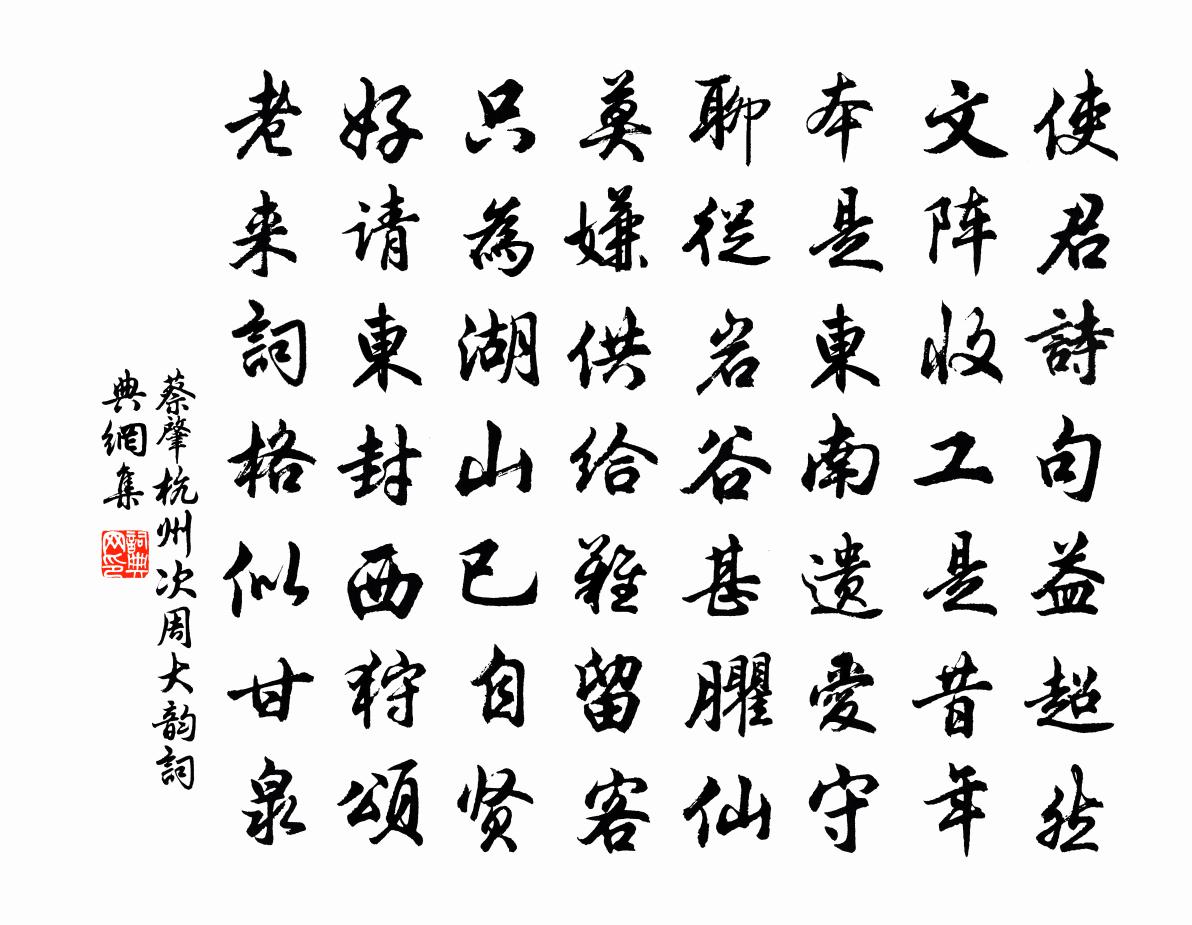 使君詩句益超然
文阵收工是昔年
本是東南遗愛守
聊從岩谷甚臞仙
莫嫌供给難留客
只為湖山已自贤
好请東封西狩頌
老来詞格似甘泉
蔡肇杭州次周大韵詞
典網集
詞典
网印